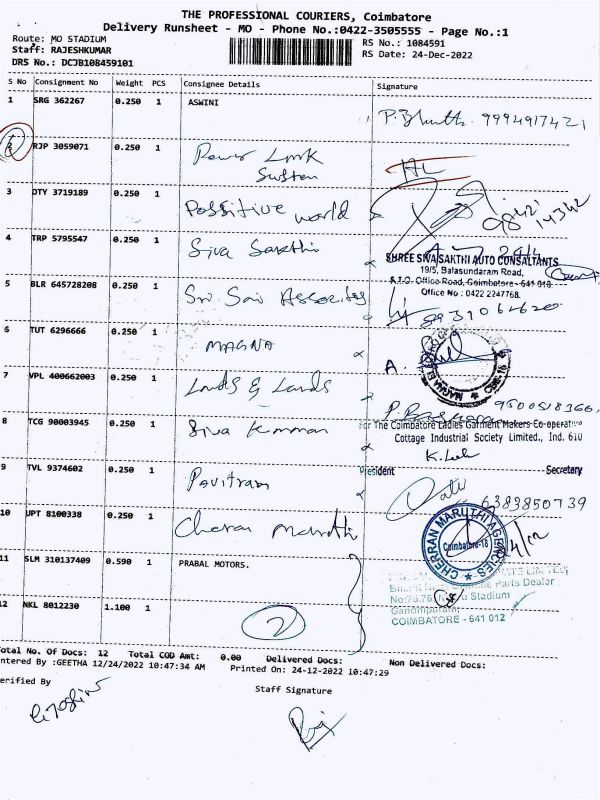 THE PROFESSIONAL COURIERS, Coimbatore
Delivery Runsheet - MO - Phone No.:0422-3505555 - Page No.:1
Route: MO STADIUM
RS No.: 1084591
Staff: RAJESHKUMAR
RS Date: 24-Dec-2022
DRS No.: DCJB108459101
S No Consignment No Weight PCS Consignee Details Signature
1 SRG 362267 0.250 1 ASWINI
9994917421
2 RJP 3059071 0.250 1 Power Link
System
3 DTY 3719189 0.250 1 Possitive world
4 TRP 5795547 0.250 1 Siva Sakthi
SHREE SIVA SAKTHI AUTO CONSALTANTS
19/5, Balasundaram Road,
R.T.O. Office Road, Coimbatore - 641 018.
Office No : 0422 2247768.
5 BLR 645728208 0.250 1 Sri Sai Assocites
8931061620
6 TUT 6296666 0.250 1 MAGNA
7 VPL 400662003 0.250 1 Lands & Lands
8 TCG 90003945 0.250 1 Siva Kumman
For The Coimbatore Ladies Garment Makers Co-operative
Cottage Industrial Society Limited., Ind. 610
President Secretary
9 TVL 9374602 0.250 1 Pavitram
6383850739
10 UPT 8100338 0.250 1 Cheran Maruthi
CHERRAN MARUTHI AGENCIES
Coimbatore-18
11 SLM 310137409 0.590 1 PRABAL MOTORS.
Parts Dealer
Stadium
Gandhipuram,
COIMBATORE - 641 012
12 NKL 8012230 1.100 1
2
Total No. Of Docs: 12 Total COD Amt: 0.00 Delivered Docs: Non Delivered Docs:
Entered By :GEETHA 12/24/2022 10:47:34 AM Printed On: 24-12-2022 10:47:29
Verified By
Staff Signature